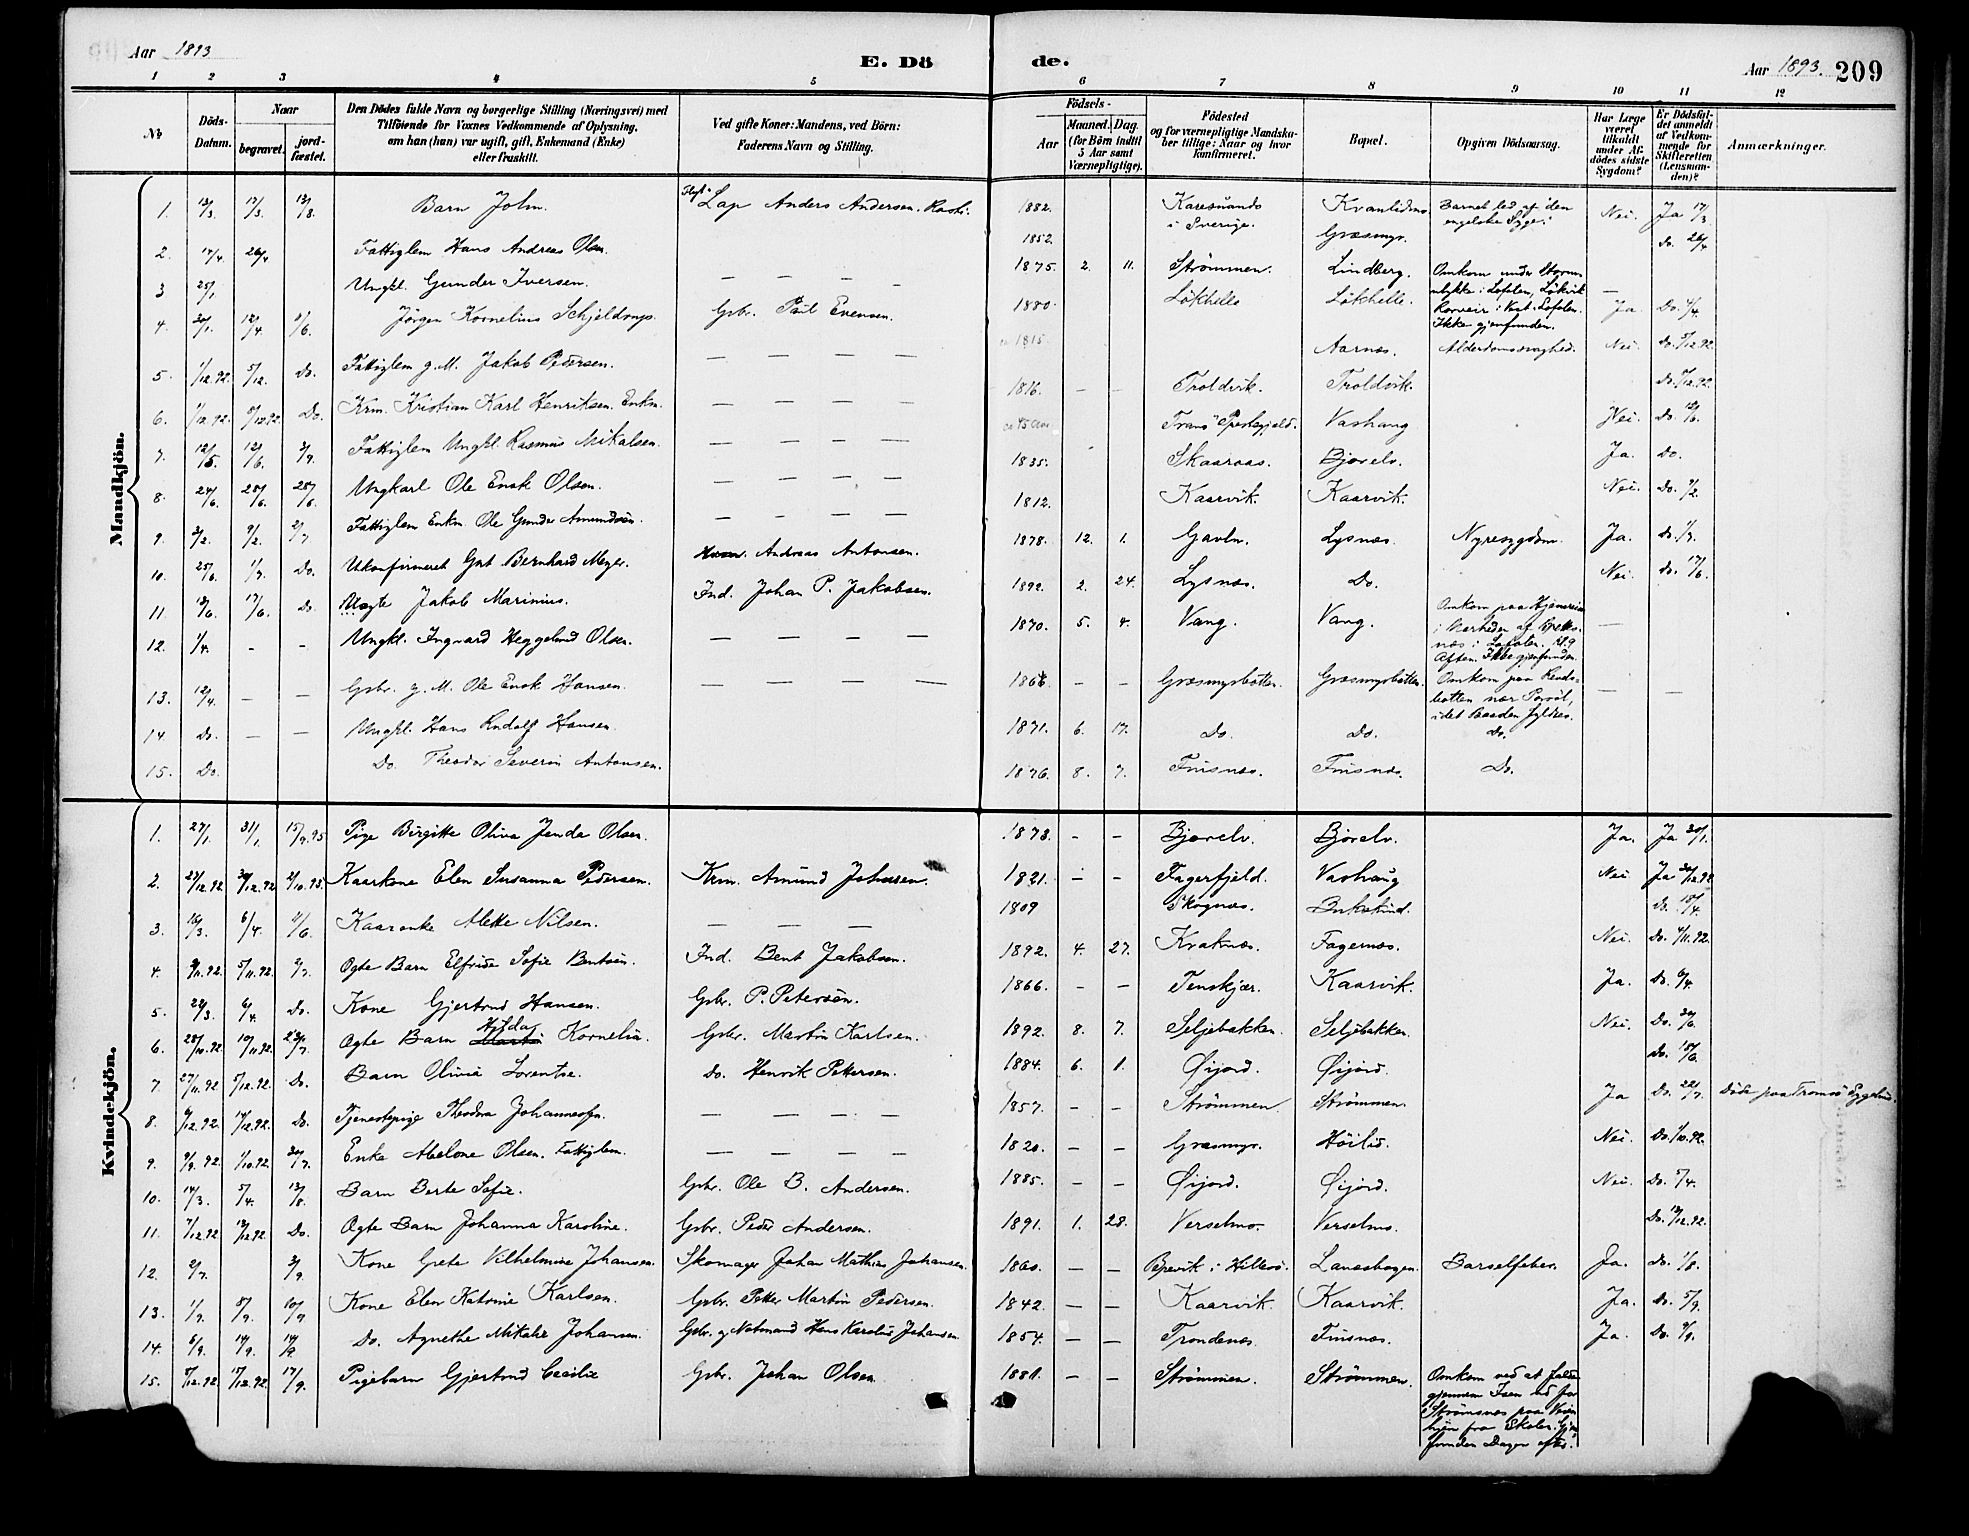 Aar 1893
E. Dö
de.
Aar 1893.
209
1 2 3 4 5 6 7 8 9 10 11 12
No
Döds-Datum.
Naar
begravet.
jord-fæstet.
Den Dödes fulde Navn og borgerlige Stilling (Næringsvei) med
Tilföiende for Voxnes Vedkommende af Oplysning,
om han (hun) var ugift, gift, Enkemand (Enke)
eller fraskilt.
Ved gifte Koner: Mandens, ved Börn:
Faderens Navn og Stilling.
Födsels-
Aar
Maaned. Dag.
(for Börn indtil
5 Aar samt
Værnepligtige).
Födested
og for værnepligtige Mandska-
ber tillige: Naar og hvor
konfirmeret.
Bopæl.
Opgiven Dödsaarsag.
Har Læge
været
tilkaldt
under Af-
dödes sidste
Sygdom?
Er Dödsfal-
det anmeldt
af Vedkom-
mende for
Skifteretten
(Lensman-
den)?
Anmærkninger.
Mandkjön.
1. 13/3. 17/3. 13/8. Barn John. Lap Anders Andersen. 1882. Karesuando i Sverige. Barnet led af den engelske Syge. Nei. Ja 17/3
2. 17/4. 26/4 Fattiglem Hans Andreas Olsen. 1852. Græsmyr. Do. 26/4
3 25/1 Ungkl. Gunder Iversen. — — — — 1875. 2. 11. Strømmen. Lindberg. Omkom under Storm —
4. 30/1. 12/4. 11/6. Jörgen Kornelius Schjeldrup. Gbr. Paul Evensen. 1880. Løkhelle Løkhelle. Ikke gjenfunden. Ja. Do. 4/4.
5. 1/12.92. 5/12. Do. Fattiglem g. M. Jakob Pedersen. — — — — ca 1815. Aarnæs. Alderdomssvaghed. Nei. Do. 5/12.92
6. 1/12.92. 9/12.92. Do. Krm. Kristian Karl Henriksen. Enkm. — — — — 1816. — — Troldvik. Troldvik.
7. 12/5. 12/6. 2/7. Fattiglem Ungkl. Rasmus Mikalsen. — — — — Vashaug Nei. Do. 12/6.
8. 24/6. 28/6. 28/6. Ungkarl Ole Enok Olsen. — — — — 1835. Skaaraas. Bjorelv. Ja. Do.
9. 3/2. 9/2. 2/7 Fattiglem Enkm. Ole Gunder Amundsen. — — — — 1812. Kaarvik. Kaarvik. Nei. Do. 7/2.
10. 25/6. 1/7. Do. Ukonfirmeret Gut Bernhard Meyer. Andreas Antonsen. 1878. 12. 1. Lysnæs. Nyresygdom. Ja. Do. 1/7.
11. 13/6. 17/6. Do. Uægte Jakob Marinius. Ind. Johan P. Jakobsen. 1892. 2. 24. Lysnæs. Do. Nei. Do. 17/6.
12. 1/4. - - Ungkl. Ingvard Heggelund Olsen. — — — — 1870. 5. 4. Vang. Vang. Omkom paa Hjemreise i Nærheden af i Lofoten. Kl. 9 Aften. Ikke gjenfunden. —
13. 12/4. — — Gbr. g. M. Ole Enok Hansen. — — — — 1866. — — Græsmyrbotten. Græsmyrbotten. Omkom paa nær idet Baaden fyldtes. — —
14. Do. — — Ungkl. Hans Rudolf Hansen. 1871. 6. 17. Do. Do. Do.
15. Do. Do. Theodor Severin Antonsen. 1876. 8. 7. Finsnæs. Finsnæs. Do.
Kvindekjön.
1. 27/1. 31/1. 15/9.95 Pige Birgitte Oliva Olsen. 1873. — — Bjorelv. Bjørelv. Ja. Ja 30/1.
2. 27/12.92 30/12.92 Kaarkone Elen Susanna Pedersen. Krm. Amund Johnsen. 1821. — — Fagerfjeld. Vashaug Nei Ja 30/12.92
3. 16/3. 6/4. 11/6. Kaarenke Mette Nilsen. — — — 1809 Skognæs. Do. 18/4.
4. 5/11.92. 2/7. Ægte Barn Elfrida Sofie Bentsen. Ind. Bent Jakobsen. 1892. 4. 27. Kraknæs. Fagernæs. Nei. Do. 4/11.92.
5. 28/3. 6/4 Do. Kone Gjertrud Hansen. Gbr. P. Petersen. 1866. — — Tenskjær. Kaarvik. Ja. Do. 6/4.
6. 28/10.92 10/11.92. Ægte Barn Hilda Kornelia. Gbr. Martin Karlsen. 1892. 8. 7. Seljebakken. Seljebakken. Nei. Do. 30/6.
7. 27/11.92 5/12.92. Do. Barn Olivia Lorentse. Do. Henrik Pettersen. 1884. 6. 1. Øijord. Øijord. Do. 18/6.
8. 6/12.92. 14/12.92. Do. Tjenestepige Theodora Johannesen. — — — — 1857. — — Strømmen Strømmen. Ja Do. 22/7. Döde paa Tromsö Sygehus.
9. 9/9.92. 1/10.92. 30/7. Enke Abelone Olsen. Fattiglem. — — — — 1820. — — Græsmyr. Høilid. Nei. Do. 1/10.92.
10. 14/3. 5/4. 13/8. Barn Berte Sofie. Gbr. Ole B. Andersen. 1885. — — Øijord. Øijord. Nei. Do. 5/4.
11. 7/12.92. 13/12.92. Do. Ægte Barn Johanna Karoline. Gbr. Peder Andersen. 1891. 1. 28. Verselmo. Verselmo. Do. 13/12.92.
12. 2/7. 3/9. Kone Grete Vilhelmine Johansen. Skomager Johan Mathias Johansen. 1860. — — Brevik i Hillesö. Lanesskogen. Barselfeber. Ja. Do. 1/8.
13. 1/9. 8/9. 10/9. Kone Elen Katrine Karlsen. Gbr. Petter Martin Pedersen. 1842. — — Kaarvik. Kaarvik. Ja. Do. 5/9.
14. 6/9. 14/9. 14/9. Do. Agnethe Mikalie Johansen. Gbr. og Notmand Hans Karolius Johansen. 1854. — — Trondenæs. Finsnæs. Ja. Do. 9/9.
15. 5/12.92. 15/12.92. 17/9. Pigebarn Gjertrud Cecilie Gbr. Johan Olsen. 1881. — — Strømmen. Strømmen. Omkom ved at falde
gjennem Isen ud for
Strømsnæs paa Veien
hjem fra Skolen.
funden Dagen efter.